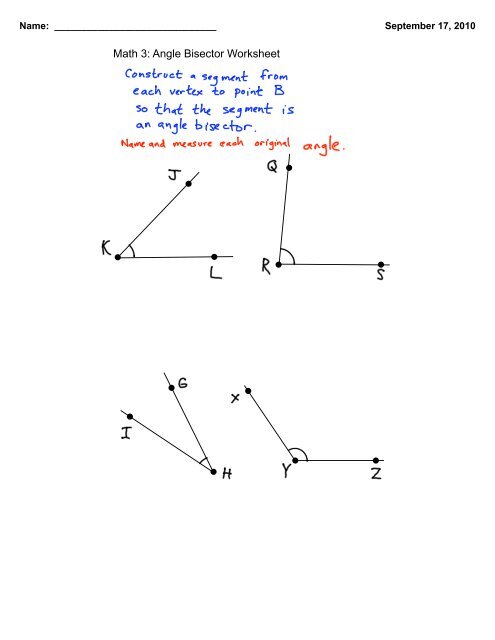 Name: ____________________________ September 17, 2010
Math 3: Angle Bisector Worksheet
Construct a segment from
each vertex to point B
so that the segment is
an angle bisector.
Name and measure each original angle.
J
Q
K
L
R
S
G
X
I
H
Y
Z